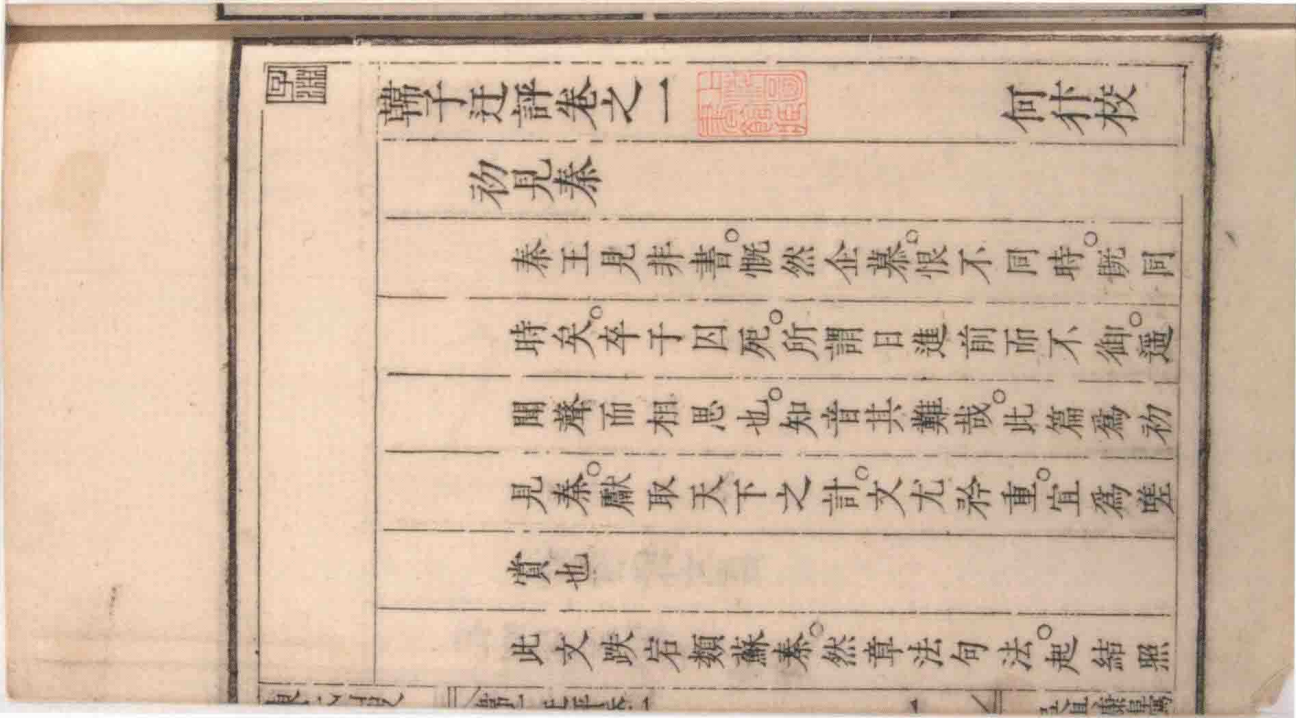 韓子迂評卷之一　何犿校
初見秦
秦王見非書。慨然企慕。恨不同時。旣同
時矣。卒于囚死。所謂日進前而不御。遥
聞聲而相思也。知音其難哉。此篇爲初
見秦。獻取天下之計。文尤矜重。宜爲嗟
賞也
此文跌宕類蘇秦。然章法句法。起結照